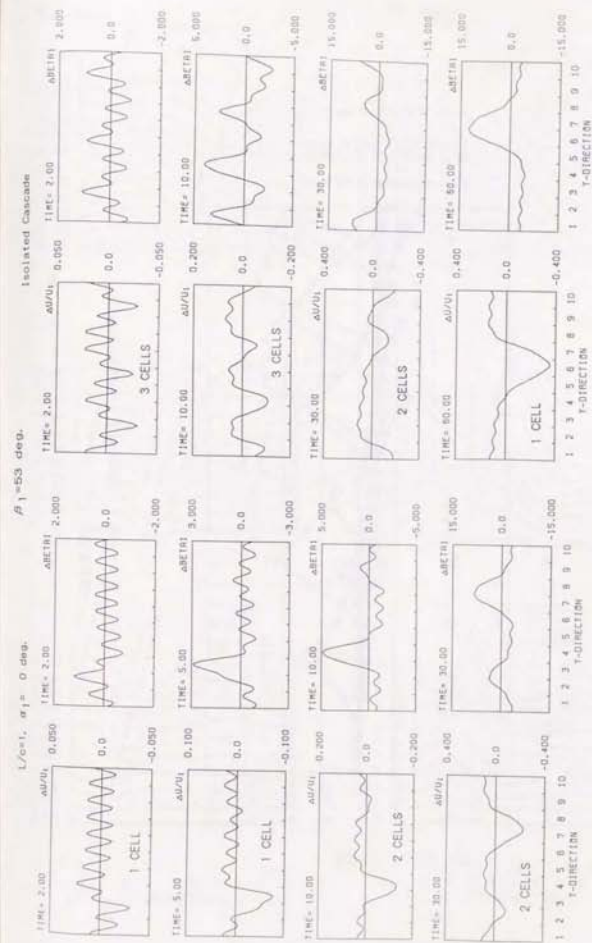 L/c=1, α1= 0 deg.
β1=53 deg.
Isolated Cascade
TIME= 2.00 ΔU/U1 0.050
0.0
1 CELL
-0.050
TIME= 5.00 ΔU/U1 0.100
0.0
1 CELL
-0.100
TIME= 10.00 ΔU/U1 0.200
0.0
2 CELLS
-0.200
TIME= 30.00 ΔU/U1 0.400
0.0
2 CELLS
-0.400
1 2 3 4 5 6 7 8 9 10
Y-DIRECTION
TIME= 2.00 ΔBETA1 2.000
0.0
-2.000
TIME= 5.00 ΔBETA1 3.000
0.0
-3.000
TIME= 10.00 ΔBETA1 5.000
0.0
-5.000
TIME= 30.00 ΔBETA1 15.000
0.0
-15.000
1 2 3 4 5 6 7 8 9 10
Y-DIRECTION
TIME= 2.00 ΔU/U1 0.050
0.0
3 CELLS
-0.050
TIME= 10.00 ΔU/U1 0.200
0.0
3 CELLS
-0.200
TIME= 30.00 ΔU/U1 0.400
0.0
2 CELLS
-0.400
TIME= 60.00 ΔU/U1 0.400
0.0
1 CELL
-0.400
1 2 3 4 5 6 7 8 9 10
Y-DIRECTION
TIME= 2.00 ΔBETA1 2.000
0.0
-2.000
TIME= 10.00 ΔBETA1 5.000
0.0
-5.000
TIME= 30.00 ΔBETA1 15.000
0.0
-15.000
TIME= 60.00 ΔBETA1 15.000
0.0
-15.000
1 2 3 4 5 6 7 8 9 10
Y-DIRECTION